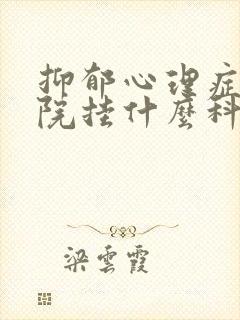 抑郁心理症
院挂什麼科
梁雲霞